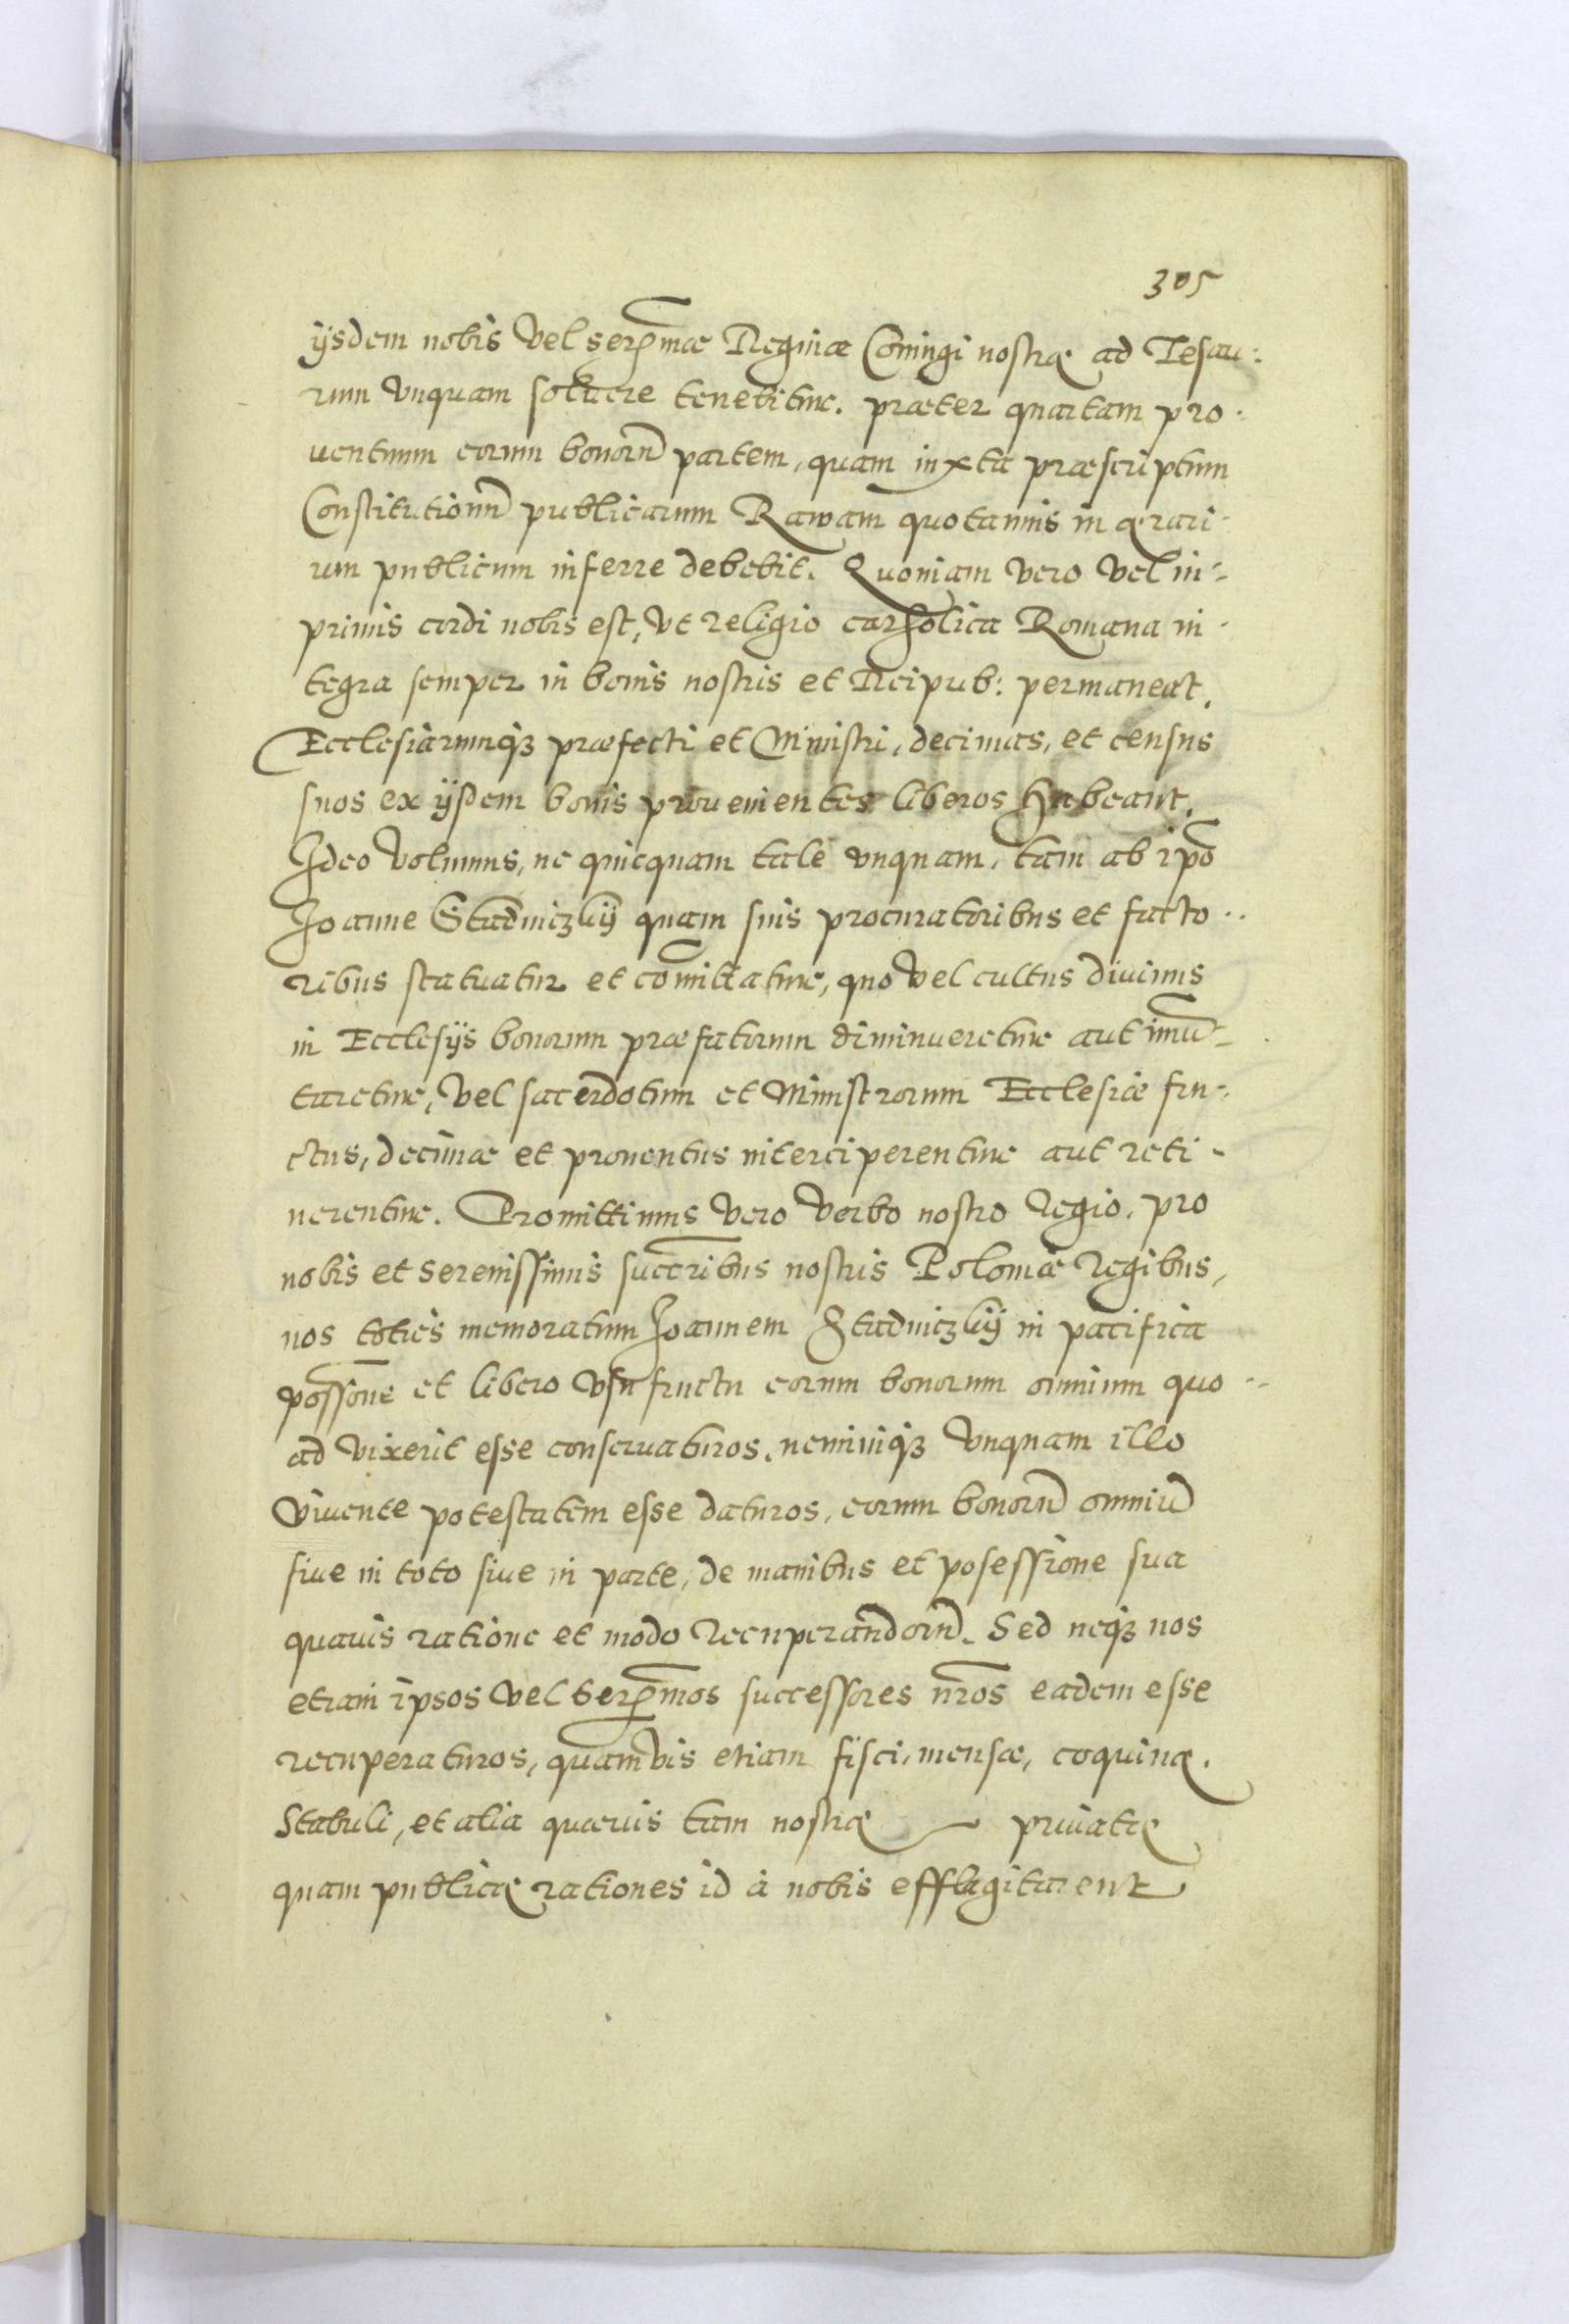 305
ijsdem nobis vel serēmae Reginae Coniugi nostrae ad Tesau:
rum vnquam soluere tenebitur. praeter quartam pro-
uentuum eorum bonorū partem, quam iuxta praescriptum
Constitutionū publicarum Rawam quotannis in aerari-
um publicum inferre debebit. Quoniam vero vel in-
primis cordi nobis est, vt religio catholica Romana in-
tegra semper in bonis nostris et Reipub: permaneat.
Ecclesiarumqȝ praefecti et Ministri, decimas, et census
suos ex ijsdem bonis prouenientes liberos habeant.
Ideo volumus, ne quicquam tale vnquam, tam ab ip̄o
Ioanne Stadniczkij quam suis procuratoribus et facto-
ribus statuatur et com̄ittatur, quo vel cultus diuinus
in Ecclesijs bonorum praefatorum diminueretur aut im̄u-
taretur, vel sacerdotum et Ministrorum Ecclesiae fru-
ctus, decimae et prouentus interciperentur aut reti-
nerentur. Promittimus vero verbo nostro Regio, pro
nobis et serenissimis succ̄ribus nostris Poloniae Regibus,
nos toties memoratum Ioannem Stadniczkij in pacifica
poss̄one et libero vsufructu eorum bonorum omnium quo-
ad vixerit esse conseruaturos, neminiqȝ vnquam illo
viuente potestatem esse daturos, eorum bonorū omniū
siue in toto siue in parte, de manibus et posessione sua
quauis ratione et modo recuperandorū. Sed neqȝ nos
etiam ipsos vel serēmos successores nr̄os eadem esse
recuperaturos, quamvis etiam fisci, mensae, coquinae.
Stabuli, et alia quaeuis tam nostrae priuatae
quam publicae rationes id à nobis efflagitarent